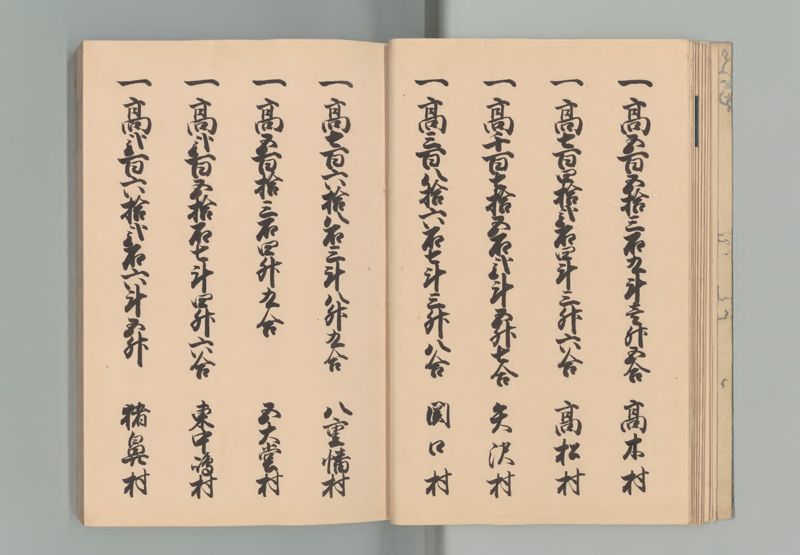 一高五百五拾三石九斗壱升五合 高木村
一高七百四拾弐石四斗三升六合 高松村
一高千百七拾五石弐斗五升七合 矢沢村
一高三百八拾六石七斗三升八合 関口村
一高七百六拾八石三斗八升九合 八重幡村
一高五百拾三石四升九合 五大堂村
一高弐百五拾石七斗四升六合 東中嶋村
一高弐百六拾弐石六斗五升 猪鼻村